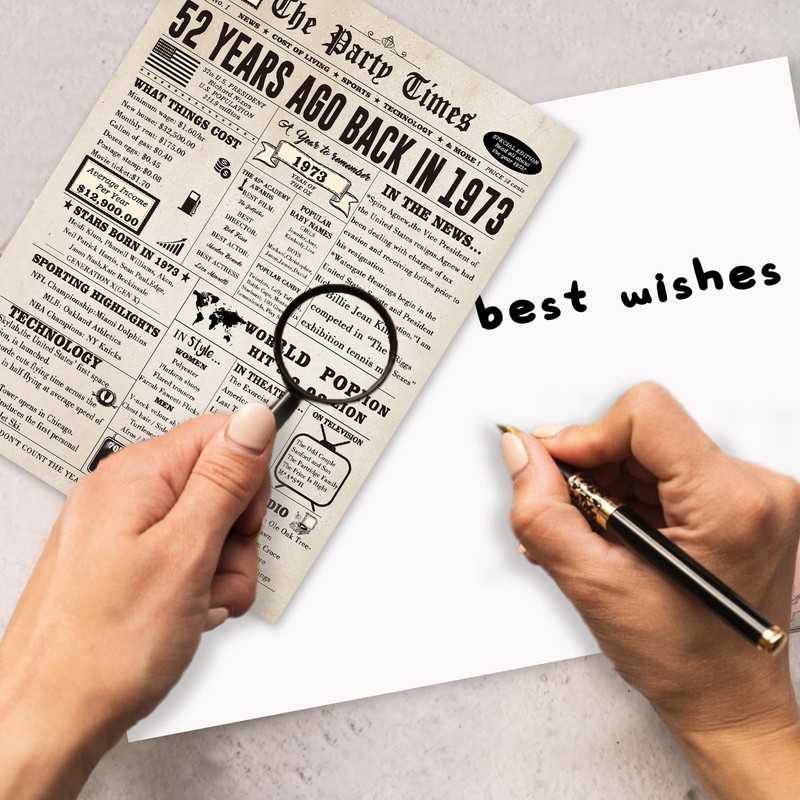 The Party Times
NEWS ★ COST OF LIVING ★ SPORTS ★ TECHNOLOGY ★ & MORE!
PRICE 12 cents
SPECIAL EDITION
Read all about
the year 1973!
52 YEARS AGO BACK IN 1973
37th U.S. PRESIDENT
Richard Nixon
U.S. POPULATION
211.9 million
WHAT THINGS COST
Minimum wage: $1.60/hr
New house: $32,500.00
Monthly rent: $175.00
Gallon of gas: $0.40
Dozen eggs: $0.45
Postage stamp: $0.08
Movie ticket: $1.70
Average Income
Per Year
$12,900.00
★ STARS BORN IN 1973 ★
Heidi Klum, Pharrell Williams, Akon,
Neil Patrick Harris, Sean Paul, Edge,
Jason Nash, Kate Beckinsale
GENERATION X (GEN X)
SPORTING HIGHLIGHTS
NFL Championship: Miami Dolphins
MLB: Oakland Athletics
NBA Champions: NY Knicks
TECHNOLOGY
Skylab, the United States' first space
on, is launched.
orde cuts flying time across the
in half flying at average speed of
Tower opens in Chicago.
roduces the first personal
Jet Ski.
DON'T COUNT THE YEA
A Year to remember
1973
YEAR OF
THE OX
THE 45th ACADEMY
AWARDS
BEST FILM:
The Godfather
BEST
DIRECTOR:
Bob Fosse
BEST ACTOR:
Marlon Brando
BEST ACTRESS:
Liza Minnelli
POPULAR
BABY NAMES
GIRLS
Jennifer, Amy,
Kimberly, Lisa
BOYS
Michael, Christopher,
Jason, James, David
POPULAR CANDY
IN THE NEWS...
"Spiro Agnew, the Vice President of
the United States resigns. Agnew had
been dealing with charges of tax
evasion and receiving bribes prior to
his resignation.
Watergate Hearings begin in the
United States
and President
"I am
Billie Jean Kin
Riggs
competed in "The
Sexes"
exhibition tennis m
WORLD POPTION
HIT
ION
IN Style...
WOMEN
Polyester
Platform shoes
Flared trousers
Farrah Fawcett Flick
MEN
Y-neck velour sh
Chest hair / Side
IN THEATE
The Exorcist
America
Last T
ON TELEVISION
The Odd Couple
Sanford and Son
The Partridge Family
The Price Is Right
M*A*S*H
DIO
Ole Oak Tree-
awn
Croce
best wishes